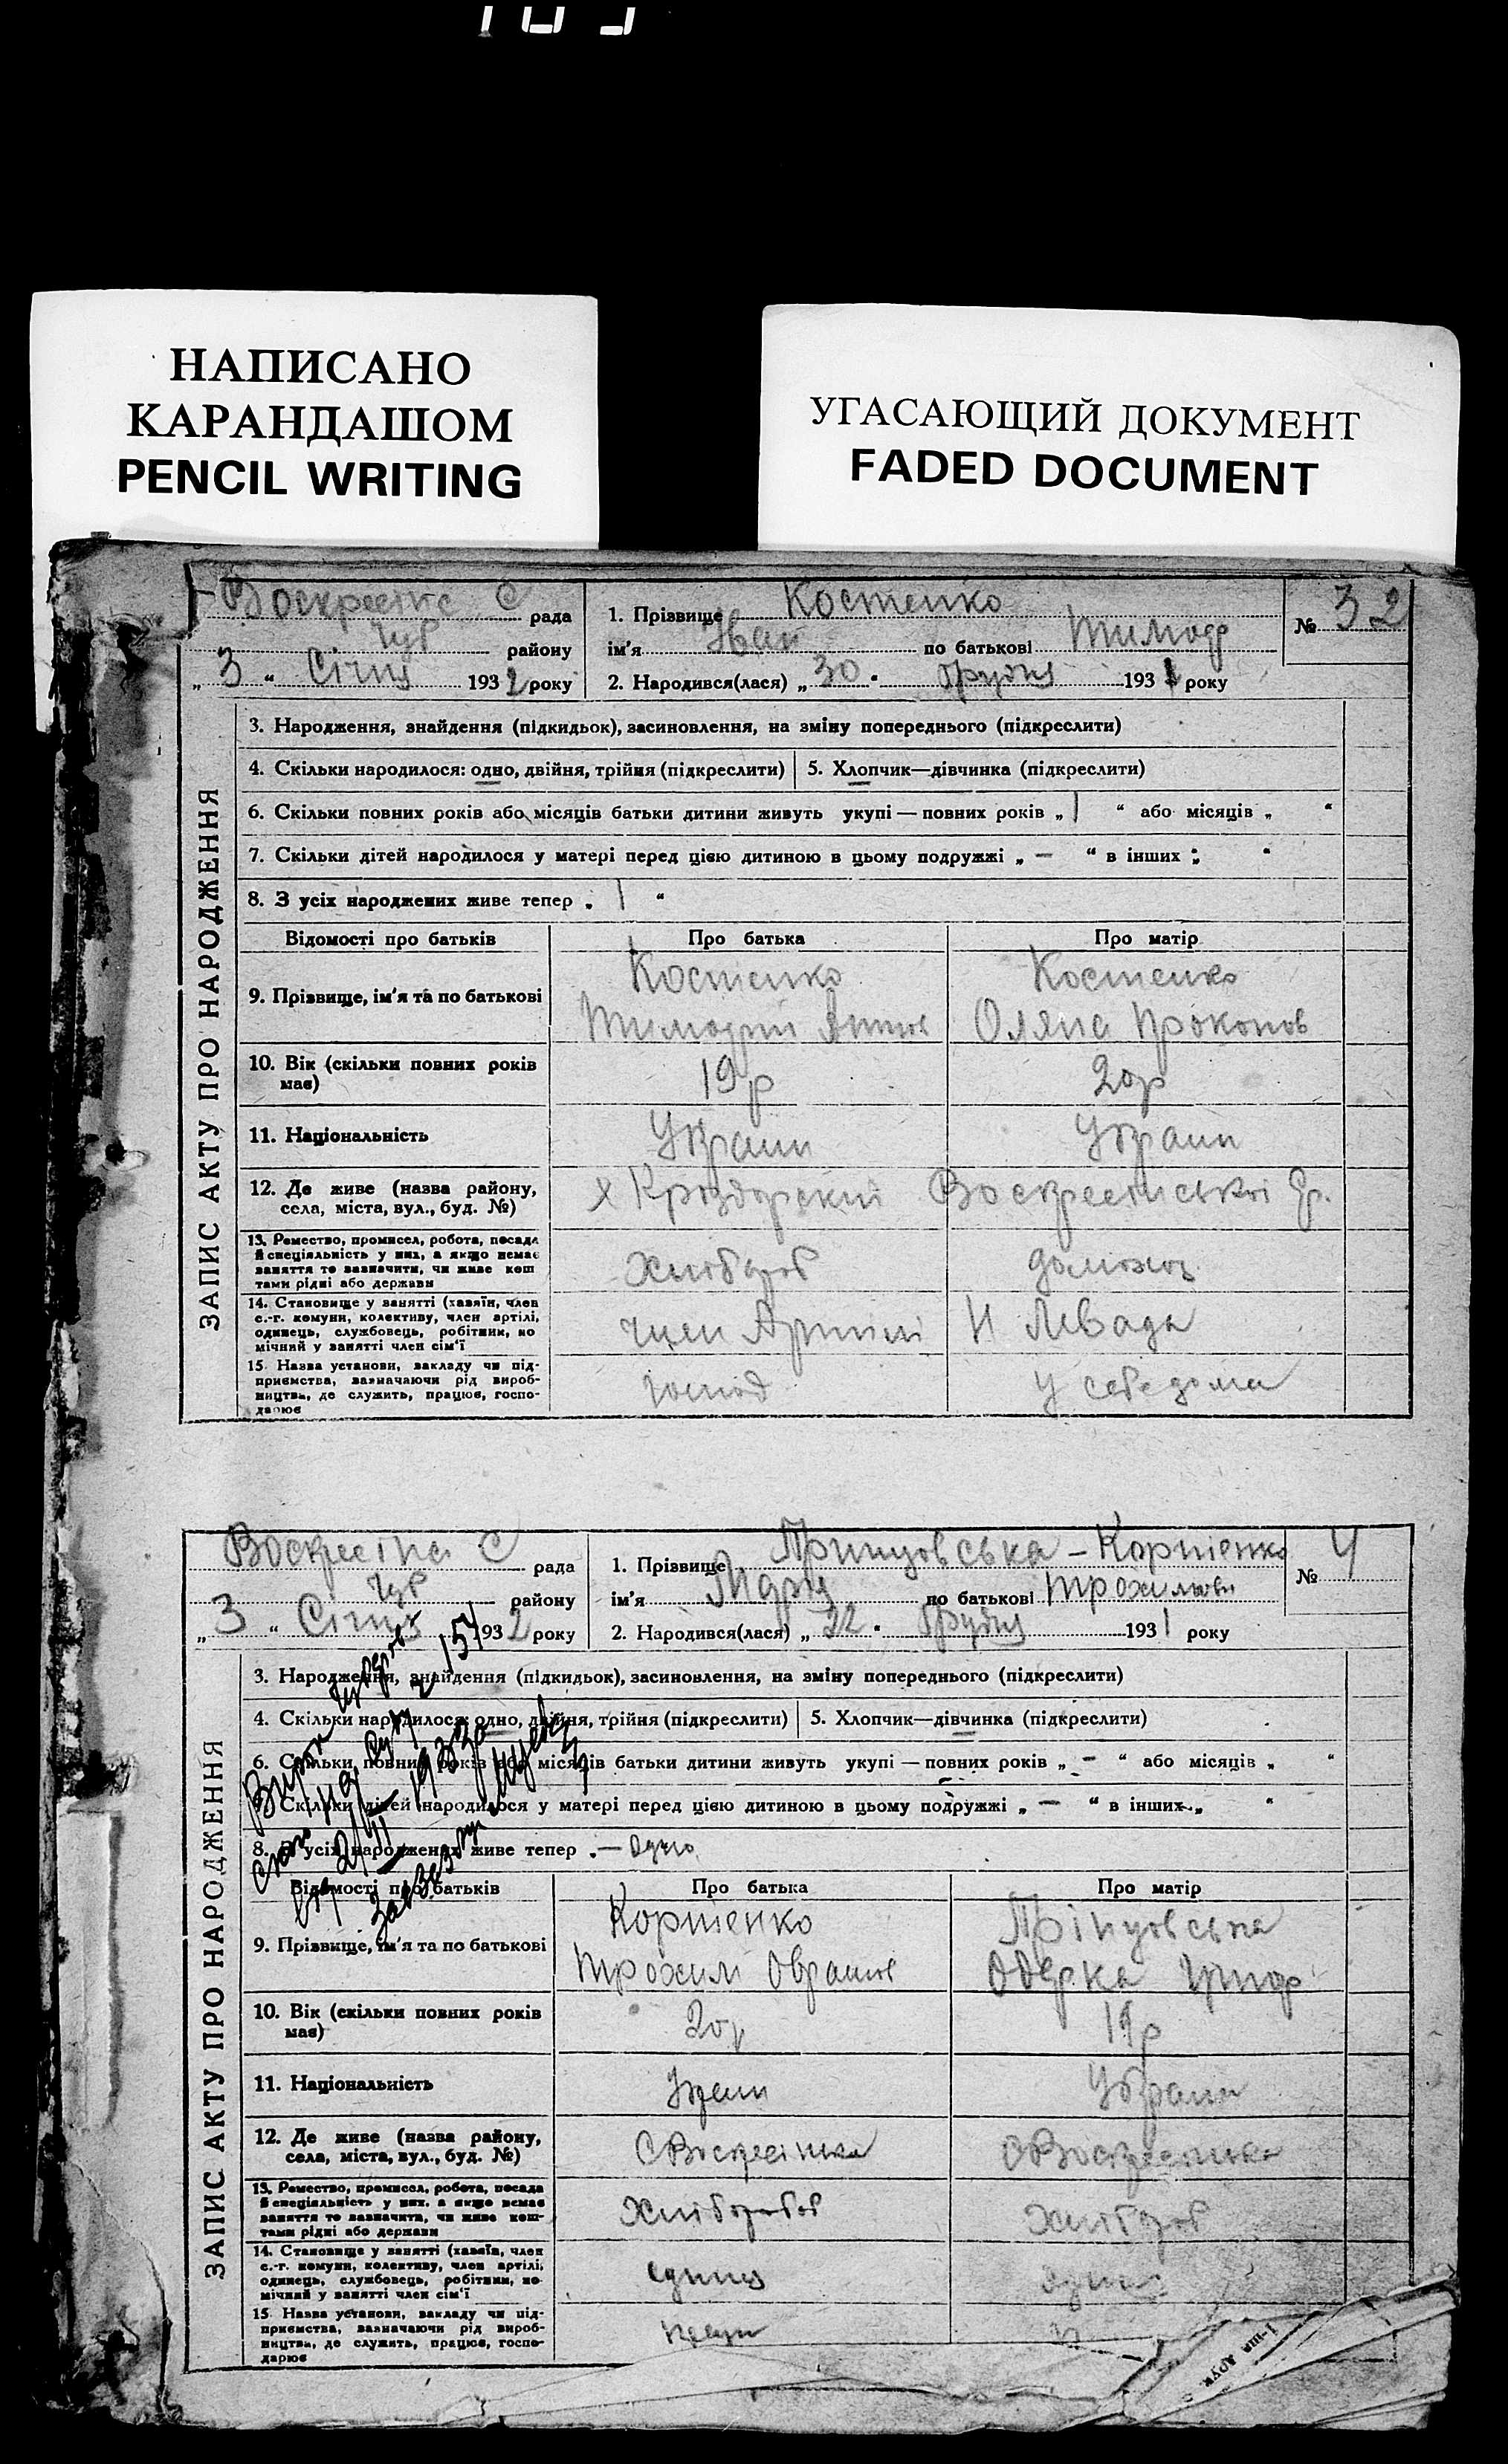 НАПИСАНО
КАРАНДАШОМ
PENCIL WRITING
УГАСАЮЩИЙ ДОКУМЕНТ
FADED DOCUMENT
ЗАПИС АКТУ ПРО НАРОДЖЕННЯ
рада
Чуб району
„ 3 “ Січня 1932 року
1. Прізвище Костенко
ім'я Іван по батькові Тимоф
2. Народився(лася) „ 30 “ Грудня 1931 року
№ 32
3. Народження, знайдення (підкидьок), засиновлення, на зміну попереднього (підкреслити)
4. Скільки народилося: одно, двійня, трійня (підкреслити) 5. Хлопчик—дівчинка (підкреслити)
6. Скільки повних років або місяців батьки дитини живуть укупі — повних років „ 1 “ або місяців „ “
7. Скільки дітей народилося у матері перед цією дитиною в цьому подружжі „ — “ в інших „ “
8. З усіх народжених живе тепер „ 1 “
Відомості про батьків Про батька Про матір
9. Прізвище, ім'я та по батькові
Костенко Костенко
Оляна Проконов
10. Вік (скільки повних років має) 19 р 20 р
11. Національність Украін Украін
12. Де живе (назва району, села, міста, вул., буд. №)
13. Ремество, промисел, робота, посада й спеціяльність у них, а якщо немає заняття то зазначити, чи живе коштами рідні або держави Хлібороб домохоз
14. Становище у занятті (хазяїн, член с.-г. комуни, колективу, член артілі, одинець, службовець, робітник, помічний у занятті член сім'ї член Артилі Н Левада
15. Назва установи, закладу чи підприємства, зазначаючи рід виробництва, де служить, працює, господарює господ у себе дома
ЗАПИС АКТУ ПРО НАРОДЖЕННЯ
рада
Чуб району
„ 3 “ Січня 1932 року
1. Прізвище Принцовська - Корнієнко
ім'я по батькові Трохимовн
2. Народився(лася) „ 22 “ Грудня 1931 року
№ 4
3. Народження, знайдення (підкидьок), засиновлення, на зміну попереднього (підкреслити)
4. Скільки народилося: одно, двійня, трійня (підкреслити) 5. Хлопчик—дівчинка (підкреслити)
6. Скільки повних років або місяців батьки дитини живуть укупі — повних років „ — “ або місяців „ “
7. Скільки дітей народилося у матері перед цією дитиною в цьому подружжі „ — “ в інших „ “
8. З усіх народжених живе тепер „ — одно
Відомості про батьків Про батька Про матір
9. Прізвище, ім'я та по батькові
Корнієнко Прінцовська
Трохим Оврамов
10. Вік (скільки повних років має) 20 р 19 р
11. Національність Украін Украін
12. Де живе (назва району, села, міста, вул., буд. №) С Воскресінка С Воскресінка
13. Ремество, промисел, робота, посада й спеціяльність у них, а якщо немає заняття то зазначити, чи живе коштами рідні або держави Хлібороб Хлібороб
14. Становище у занятті (хазяїн, член с.-г. комуни, колективу, член артілі, одинець, службовець, робітник, помічний у занятті член сім'ї
15 Назва установи, закладу чи підприємства, зазначаючи рід виробництва, де служить, працює, господарює